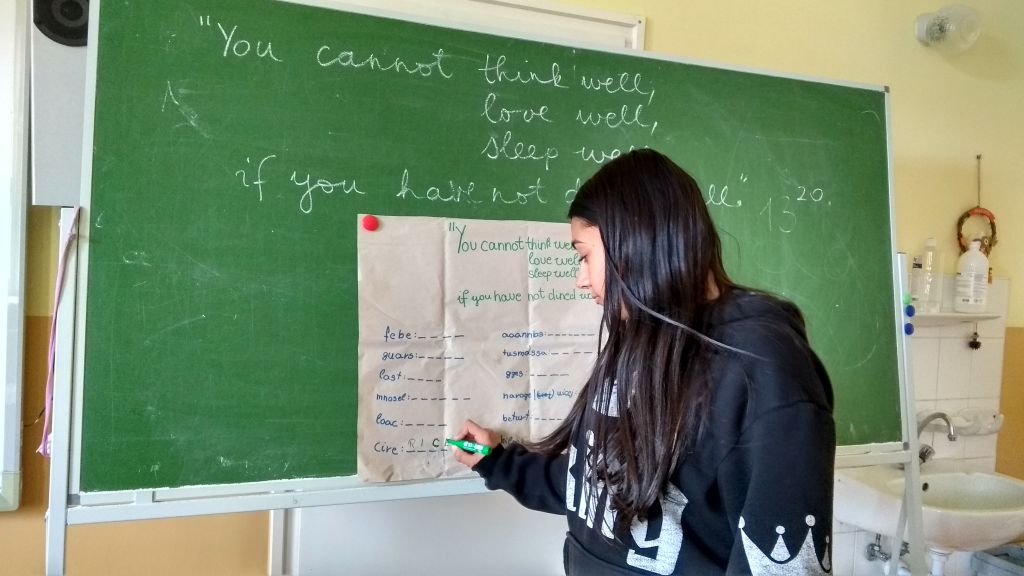 "You cannot think well,
love well,
sleep
if you have not
13 20.
"You cannot think
love well
sleep well
if you have not dined
febe:
guars:
last:
mnosel:
loac:
cire: R I C
aoannbs:
tusmoassa:
ggse:
naroge juice
betwt:
King